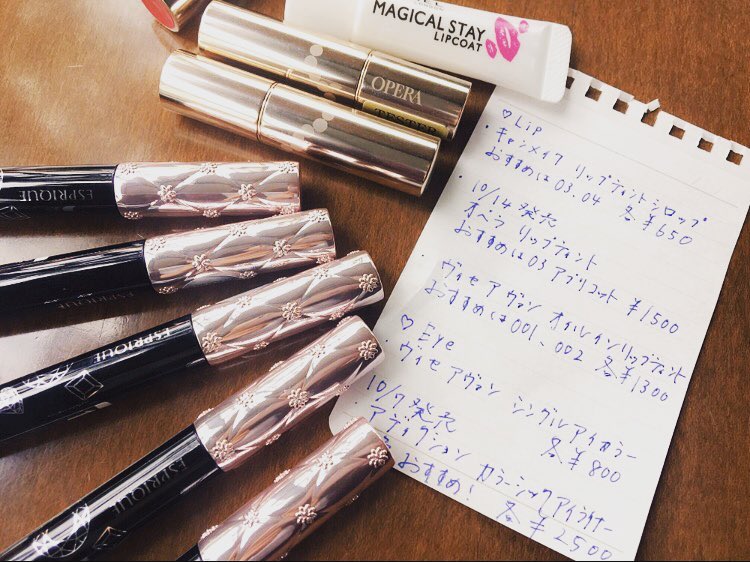 MAGICAL STAY
LIPCOAT
OPERA
TESTER
ESPRIQUE
ESPRIQUE
ESPRIQUE
ESPRIQUE
♡ Lip
・キャンメイク リップティントシロップ
おすすめは 03.04 各¥650
・10/14発売
オペラ リップティント
おすすめは 03 アプリコット ¥1500
・ヴィセ アヴァン オイルインリップティント
おすすめは 001、002 各¥1300
♡ Eye
・ヴィセ アヴァン シングルアイカラー
各¥800
10/7発売
アディクション カラーシックアイライナー
おすすめ! 各¥2500